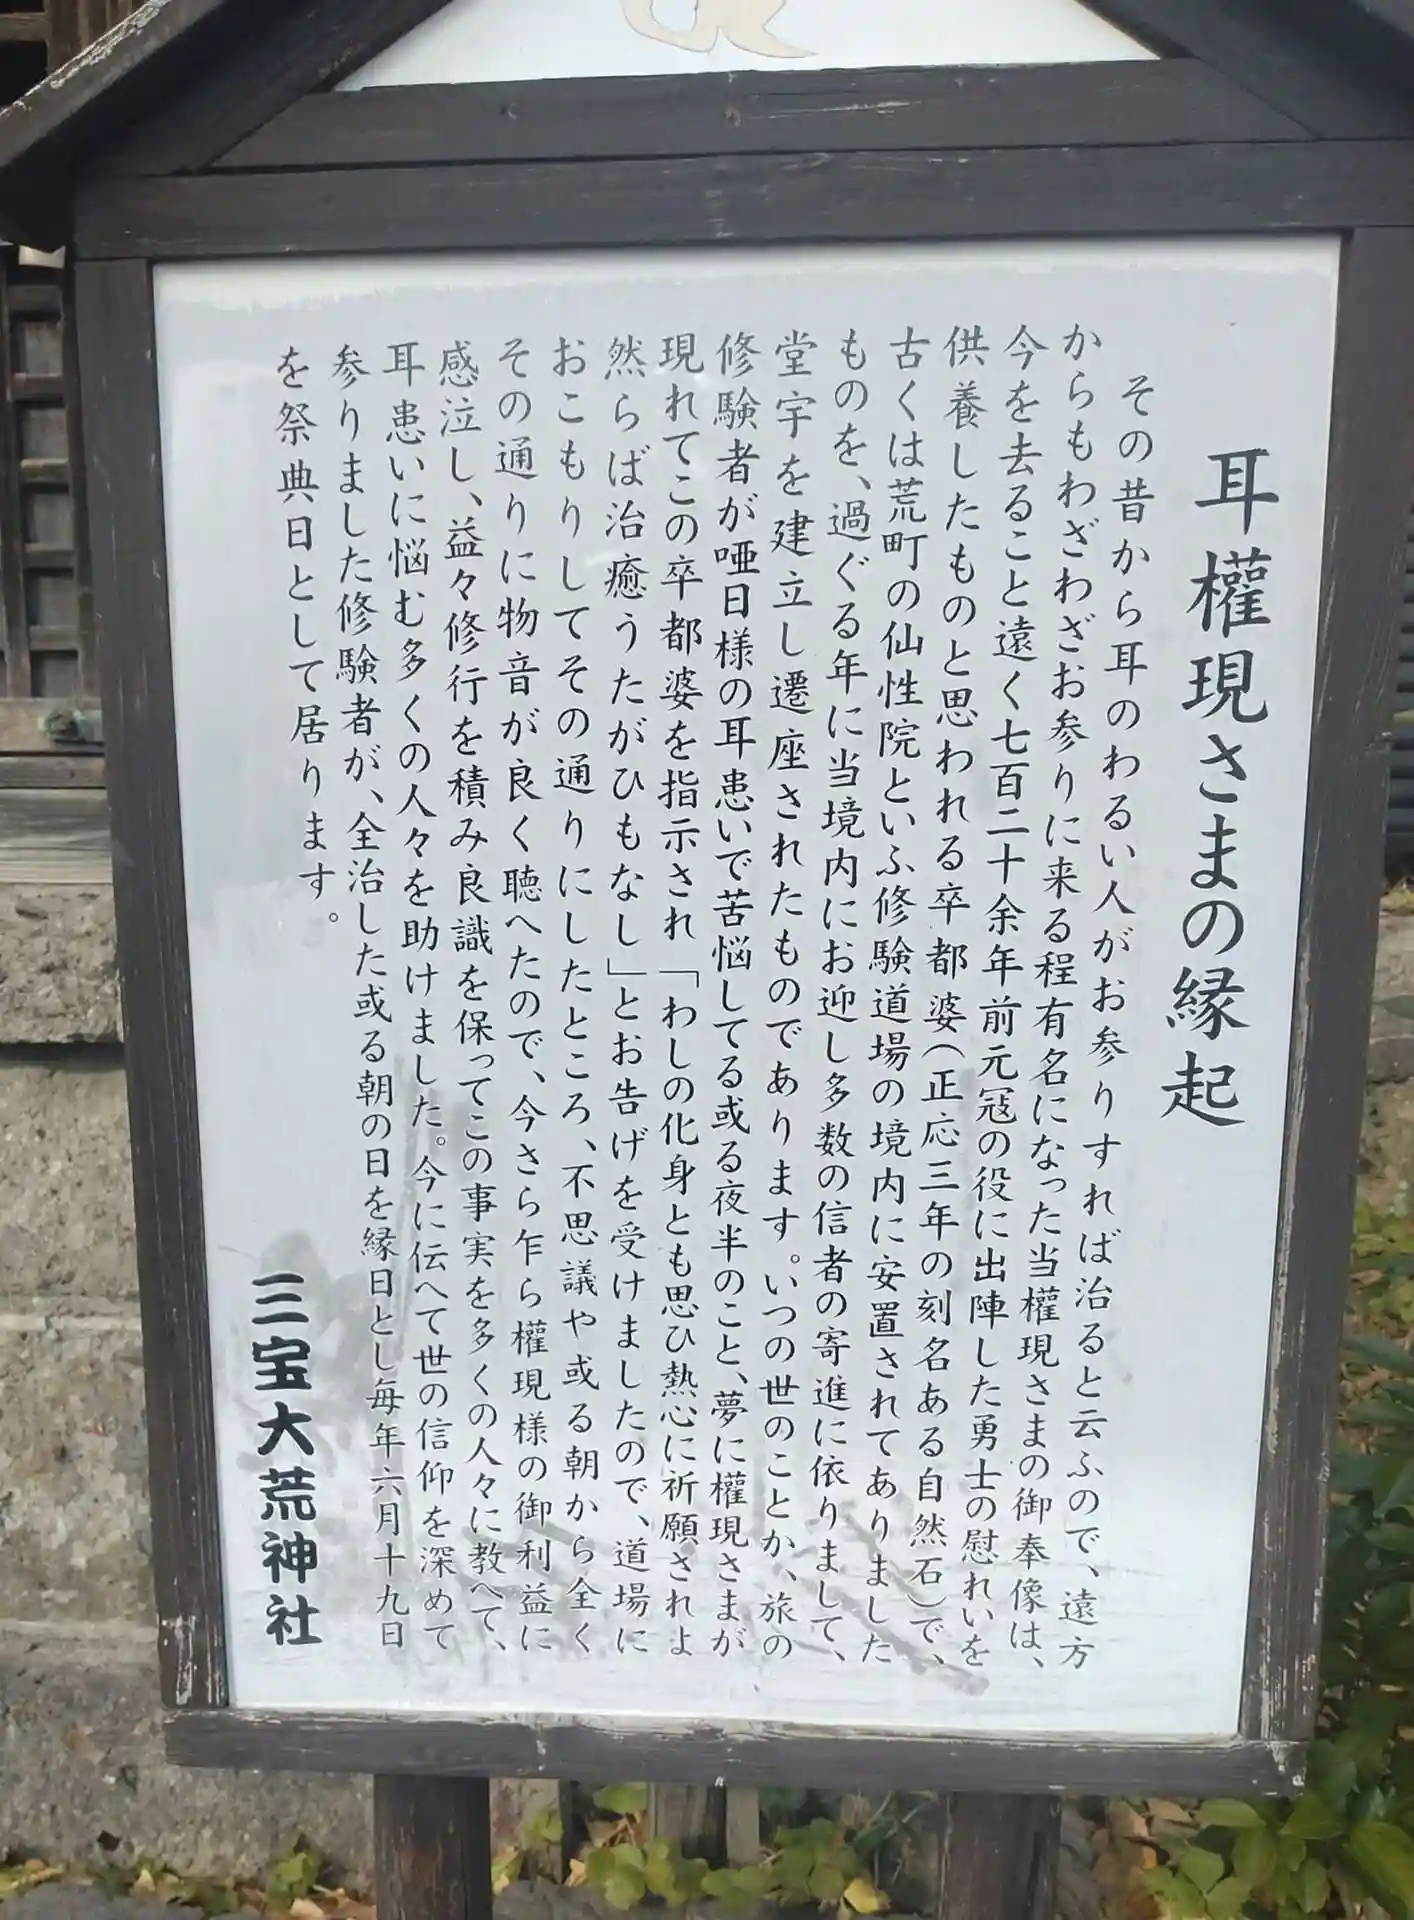 耳權現さまの縁起
その昔から耳のわるい人がお参りすれば治ると云ふので、遠方
からもわざわざお参りに来る程有名になった当權現さまの御奉像は、
今を去ること遠く七百二十余年前元冦の役に出陣した勇士の慰れいを
供養したものと思われる卒都婆(正応三年の刻名ある自然石)で、
古くは荒町の仙性院といふ修験道場の境内に安置されてありました
ものを、過ぐる年に当境内にお迎し多数の信者の寄進に依りまして、
堂宇を建立し遷座されたものであります。いつの世のことか、旅の
修験者が唖日様の耳患いで苦悩してる或る夜半のこと、夢に權現さまが
現れてこの卒都婆を指示され「わしの化身とも思ひ熱心に祈願されよ
然らば治癒うたがひもなし」とお告げを受けましたので、道場に
おこもりしてその通りにしたところ、不思議や或る朝から全く
その通りに物音が良く聴へたので、今さら乍ら權現様の御利益に
感泣し、益々修行を積み良識を保ってこの事実を多くの人々に教へて、
耳患いに悩む多くの人々を助けました。今に伝へて世の信仰を深めて
参りました修験者が、全治した或る朝の日を縁日とし毎年六月十九日
を祭典日として居ります。
三宝大荒神社